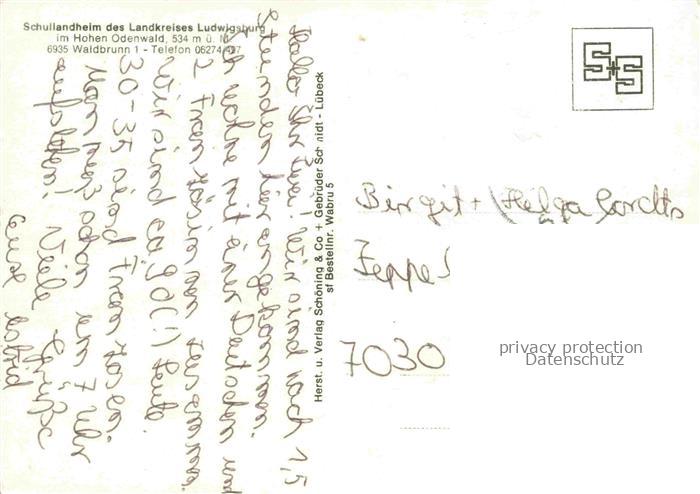 Schullandheim des Landkreises Ludwigsburg
im Hohen Odenwald, 534 m ü. M.
6935 Waldbrunn 1 - Telefon 06274/497
Hallo Ihr Zwei! Wir sind nach 1,5
Stunden hier angekommen.
Ich wohne mit einer Deutschen und
2 Französinnen zusammen.
Wir sind ca. 90 (!) Leute.
30-35 sind Franzosen.
Man muß schon um 7 Uhr
aufstehen! Viele Grüße
Eure Astrid
Herst. u. Verlag Schöning & Co + Gebrüder Schmidt - Lübeck
sf Bestellnr. Wabru 5
S+S
Birgit + Helga
7030
privacy protection
Datenschutz